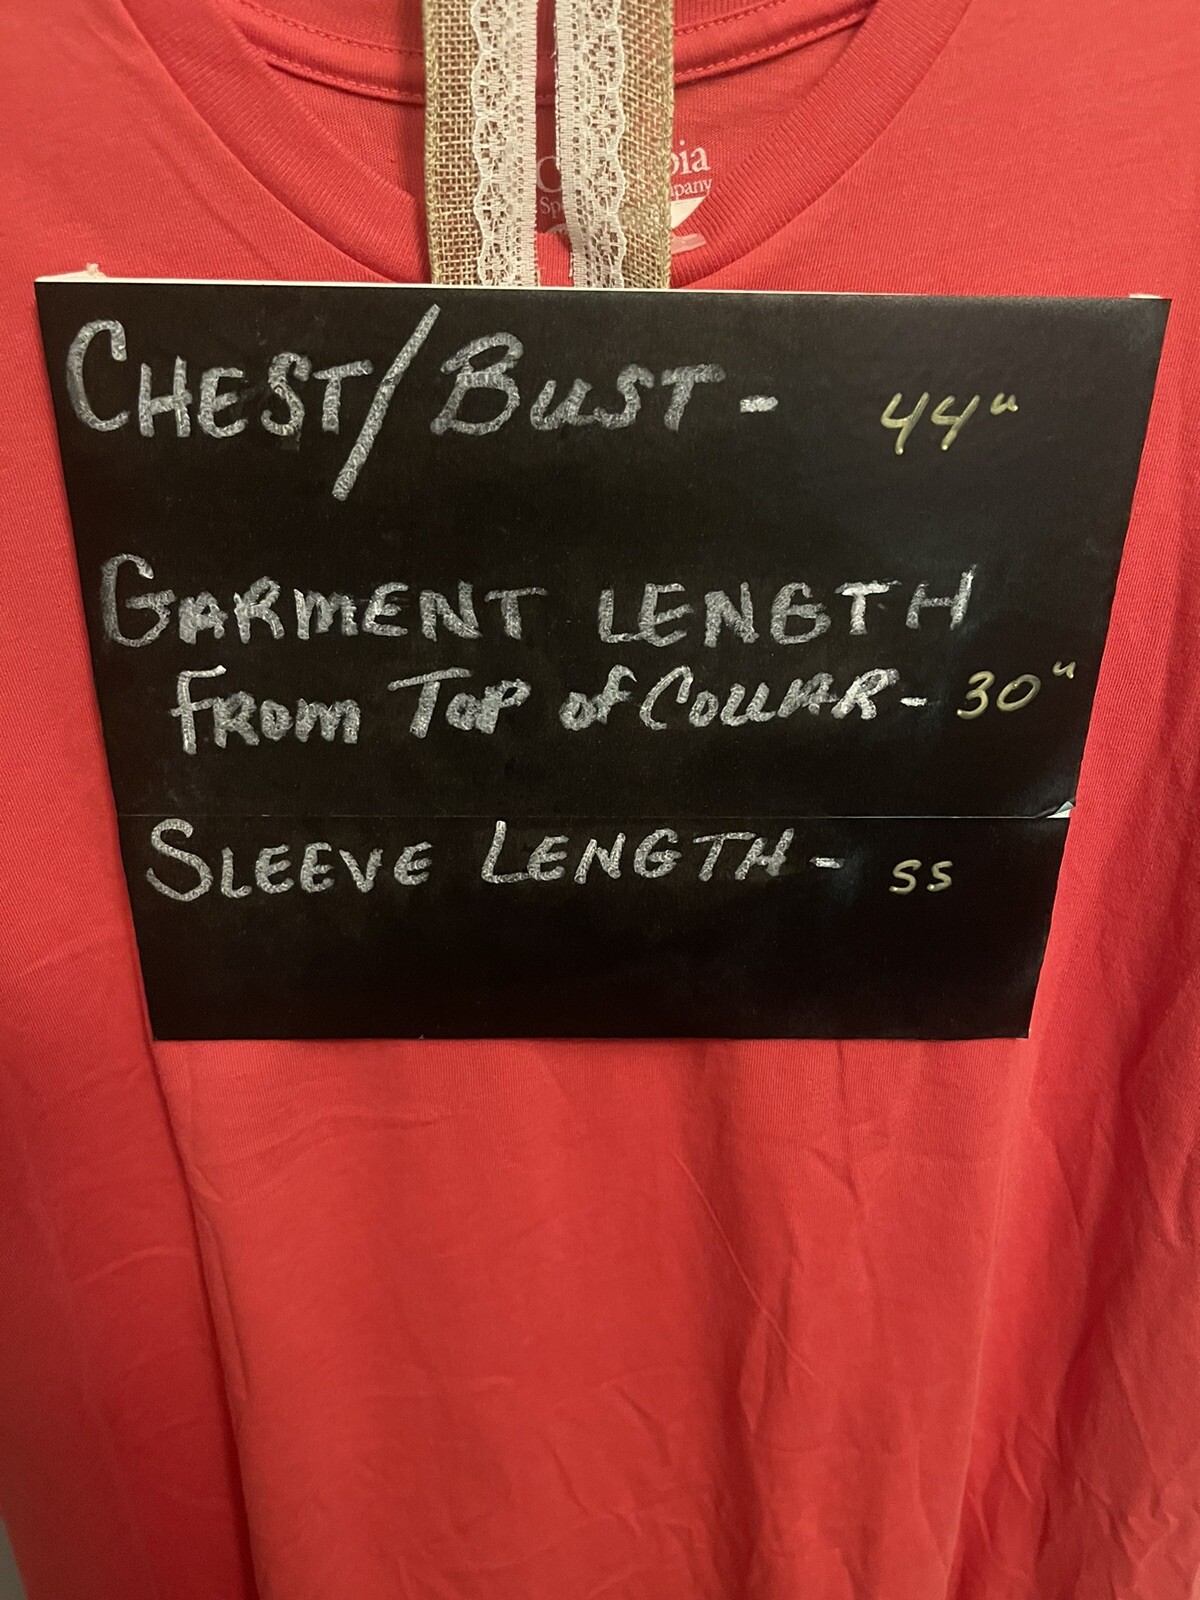 bia
pany
CHEST/BUST - 44"
GARMENT LENGTH
FROM TOP of COLLAR - 30"
SLEEVE LENGTH - SS